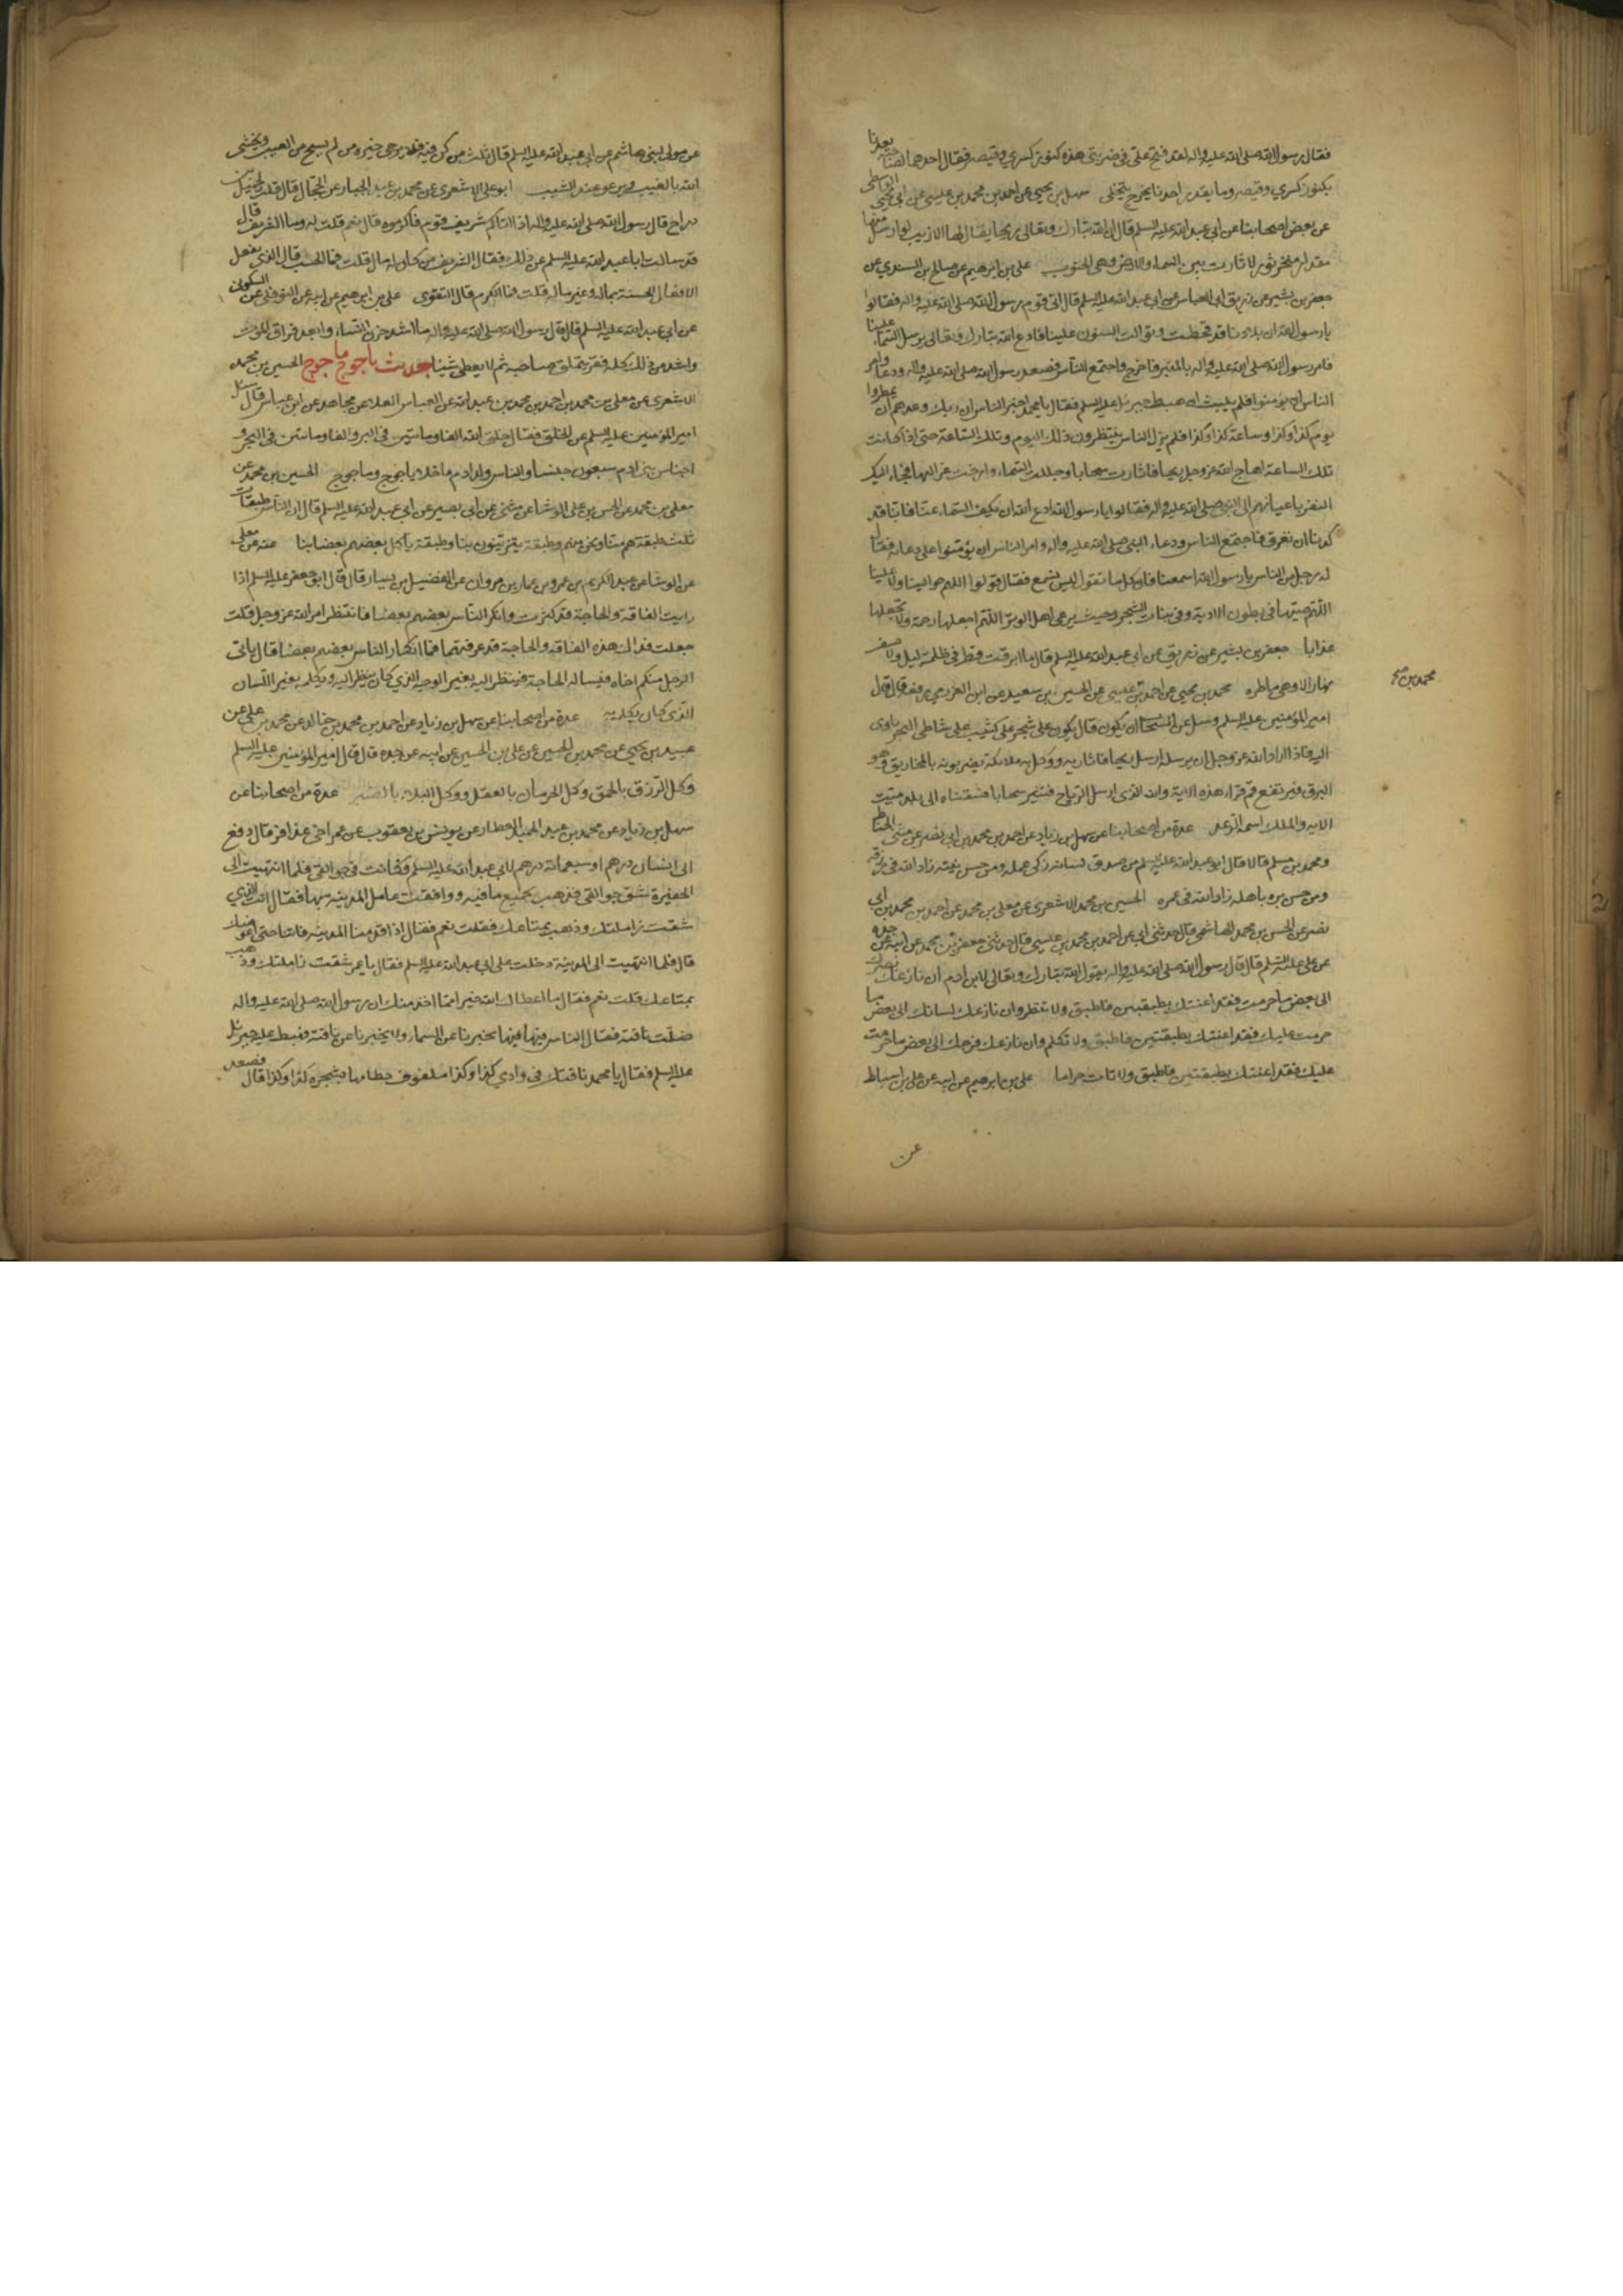 فقال رسول الله صلى الله عليه واله لقد فتح على في ضربتي هذه كنوز كسرى وقيصر فقال احدهما لصاحبه يعدنا
بكنوز كسرى وقيصر وما يقدر احدنا يخرج يتخلى سهل بن يحيى عن احمد بن محمد بن عيسى عن ابي يحيى الواسطى
عن بعض اصحابنا عن ابي عبد الله عليه السلم قال ان الله تبارك وتعالى ريحا يقال لها الازيب لو ارسل منها
مقدار منخر ثور لاثارت بين السماء والارض وهي الجنوب على بن ابرهيم عن صالح بن السندي عن
جعفر بن بشير عن زريق ابي العباس عن ابي عبد الله عليه السلم قال اتى قوم رسول الله صلى الله عليه واله فقالوا
يا رسول الله ان بلادنا قد قحطت وتوالت السنون علينا فادع الله تبارك وتعالى يرسل السماء علينا
فامر رسول الله صلى الله عليه واله بالمنبر فاخرج واجتمع الناس فصعد رسول الله صلى الله عليه واله ودعا وامر
الناس ان يؤمنوا فلم يلبث ان هبط جبرئيل عليه السلم فقال يا محمد اخبر الناس ان ربك وعدهم ان يمطروا
يوم كذا وكذا وساعة كذا وكذا فلم يزل الناس ينتظرون ذلك اليوم وتلك الساعة حتى اذا كانت
تلك الساعة اهاج الله عز وجل ريحا فاثارت سحابا وجللت السماء وارخت عزاليها فجاء اوليك
النفر باعيانهم الى النبي صلى الله عليه واله فقالوا يا رسول الله ادع الله ان يكف السماء عنا فانا قد
كدنا ان نغرق فاجتمع الناس ودعاء النبي صلى الله عليه واله وامر الناس ان يؤمنوا على دعائه فقال
له رجل من الناس يا رسول الله اسمعنا فان كل ما تقول ليس نسمع فقال قولوا اللهم حوالينا ولا علينا
اللهم صبها في بطون الاودية وفي نبات الشجر وحيث يرعى اهل الوبر اللهم اجعلها رحمة ولا تجعلها
عذابا جعفر بن بشير عن زريق عن ابي عبد الله عليه السلم قال ما ابرقت قط في ظلمة ليل ولا ضوء
نهار الا وهي ماطرة محمد بن يحيى عن احمد بن عيسى عن الحسين بن سعيد عن ابن العزرمي رفعه قال قال
محمد بن صح
امير المؤمنين عليه السلم وسئل عن السحاب اين يكون قال يكون على شجر على كثيب على شاطى البحر ياوى
اليه فاذا اراد الله عز وجل ان يرسله ارسل ريحا فاثارته ووكل به ملائكة يضربونه بالمخاريق وهو
البرق فيرتفع ثم قراء هذه الاية والله الذي ارسل الرياح فتثير سحابا فسقناه الى بلد ميت
الاية والملك اسمه الرعد عدة من اصحابنا عن سهل بن زياد عن احمد بن محمد بن ابي نصر عن مثنى الحناط
ومحمد بن مسلم قالا قال ابو عبد الله عليه السلم من صدق لسانه زكى عمله ومن حسن نيته زاد الله في رزقه
ومن حسن بره باهله زاد الله في عمره الحسين بن محمد الاشعرى عن معلى بن محمد عن احمد بن محمد بن ابي
نصر عن الحسن بن محمد الهاشمى قال حدثني ابي عن احمد بن محمد بن عيسى قال حدثني جعفر بن محمد عن ابيه عن جده
عن علي عليه السلم قال قال رسول الله صلى الله عليه واله يقول الله تبارك وتعالى لابن ادم ان نازعك بصرك
الى بعض ما حرمت فقد اعنتك بطبقتين فاطبق ولا تنظر وان نازعك لسانك الى بعض ما
حرمت عليك فقد اعنتك بطبقتين فاطبق ولا تكلم وان نازعك فرجك الى بعض ما حرمت
عليك فقد اعنتك بطبقتين فاطبق ولا تات حراما على بن ابرهيم عن ابيه عن على بن اسباط
عن
عن مولى لبني هاشم عن ابي عبد الله عليه السلم قال ثلث من كن فيه فلا يرجى خيره من لم يستح من العيب ويخشى
الله بالغيب ويرعو عند الشيب ابو على الاشعرى عن محمد بن عبد الجبار عن الحجال قال قلت لجميل بن
دراج قال رسول الله صلى الله عليه واله اذا اتاكم شريف قوم فاكرموه قال نعم قلت له وما الشريف قال
قد سالت ابا عبد الله عليه السلم عن ذلك فقال الشريف من كان له مال قلت فما الحسب قال الذي يفعل
الافعال الحسنة بماله وغير ماله قلت فما الكرم قال التقوى على بن ابرهيم عن ابيه عن النوفلى عن السكونى
عن ابي عبد الله عليه السلم قال قال رسول الله صلى الله عليه واله ما اشد حزن النساء وابعد فراق الموت
واشد من ذلك كله فقر يتملق صاحبه ثم لا يعطى شيئا حديث ياجوج ماجوج الحسين بن محمد
الاشعرى عن معلى بن محمد عن احمد بن محمد بن عبد الله عن العباس العلا عن مجاهد عن ابن عباس قال سئل
امير المؤمنين عليه السلم عن الخلق فقال خلق الله الفا ومائتين في البر والفا ومائتين في البحر و
اجناس بني ادم سبعون جنسا والناس ولد ادم ما خلا ياجوج وماجوج الحسين بن محمد عن
معلى بن محمد عن الحسن بن على الوشا عن مثنى عن ابي بصير عن ابي عبد الله عليه السلم قال ان الناس طبقات
ثلث طبقة هم منا ونحن منهم وطبقة يتزينون بنا وطبقة ياكل بعضهم بعضا بنا عنه عن معلى
عن الوشا عن عبد الكريم بن عمرو بن عمار بن مروان عن الفضيل بن يسار قال قال ابو جعفر عليه السلم اذا
رايت الفاقة والحاجة قد كثرت وانكر الناس بعضهم بعضا فانتظر امر الله عز وجل قلت
جعلت فداك هذه الفاقة والحاجة قد عرفتهما فما انكار الناس بعضهم بعضا قال ياتى
الرجل منكم اخاه فيساله الحاجة فينظر اليه بغير الوجه الذي كان ينظر اليه ويكلمه بغير اللسان
الذي كان يكلمه به عدة من اصحابنا عن سهل بن زياد عن احمد بن محمد بن خالد عن محمد بن على عن
عبيد بن يحيى عن محمد بن الحسين عن على بن الحسين عن ابيه عن جده قال قال امير المؤمنين عليه السلم
وكل الرزق بالحمق وكل الحرمان بالعقل ووكل البلاء بالصبر عدة من اصحابنا عن
سهل بن زياد عن محمد بن عبد الحميد العطار عن يونس بن يعقوب عن عمر اخى عذافر قال دفع
الى انسان درهم او سبعمائة درهم لابي عبد الله عليه السلم فكانت في جوالقى فلما انتهيت الى
الحفيرة شق جوالقى وذهب بجميع ما فيه ووافقت عامل المدينة بها فقال انت الذي
شقت زاملتك وذهب بمتاعك فقلت نعم فقال اذا قدمنا المدينة فاتنا حتى اعوضك
قال فلما انتهيت الى المدينة دخلت على ابي عبد الله عليه السلم فقال يا عمر شقت زاملتك وذهب
بمتاعك قلت نعم فقال ما اعطاك الله خير مما اخذ منك ان رسول الله صلى الله عليه واله
ضلت ناقته فقال الناس فيها يخبرنا عن السماء ولا يخبرنا عن ناقته فهبط عليه جبرئيل
عليه السلم فقال يا محمد ناقتك في وادي كذا وكذا ملفوف خطامها بشجرة كذا وكذا قال فصعد